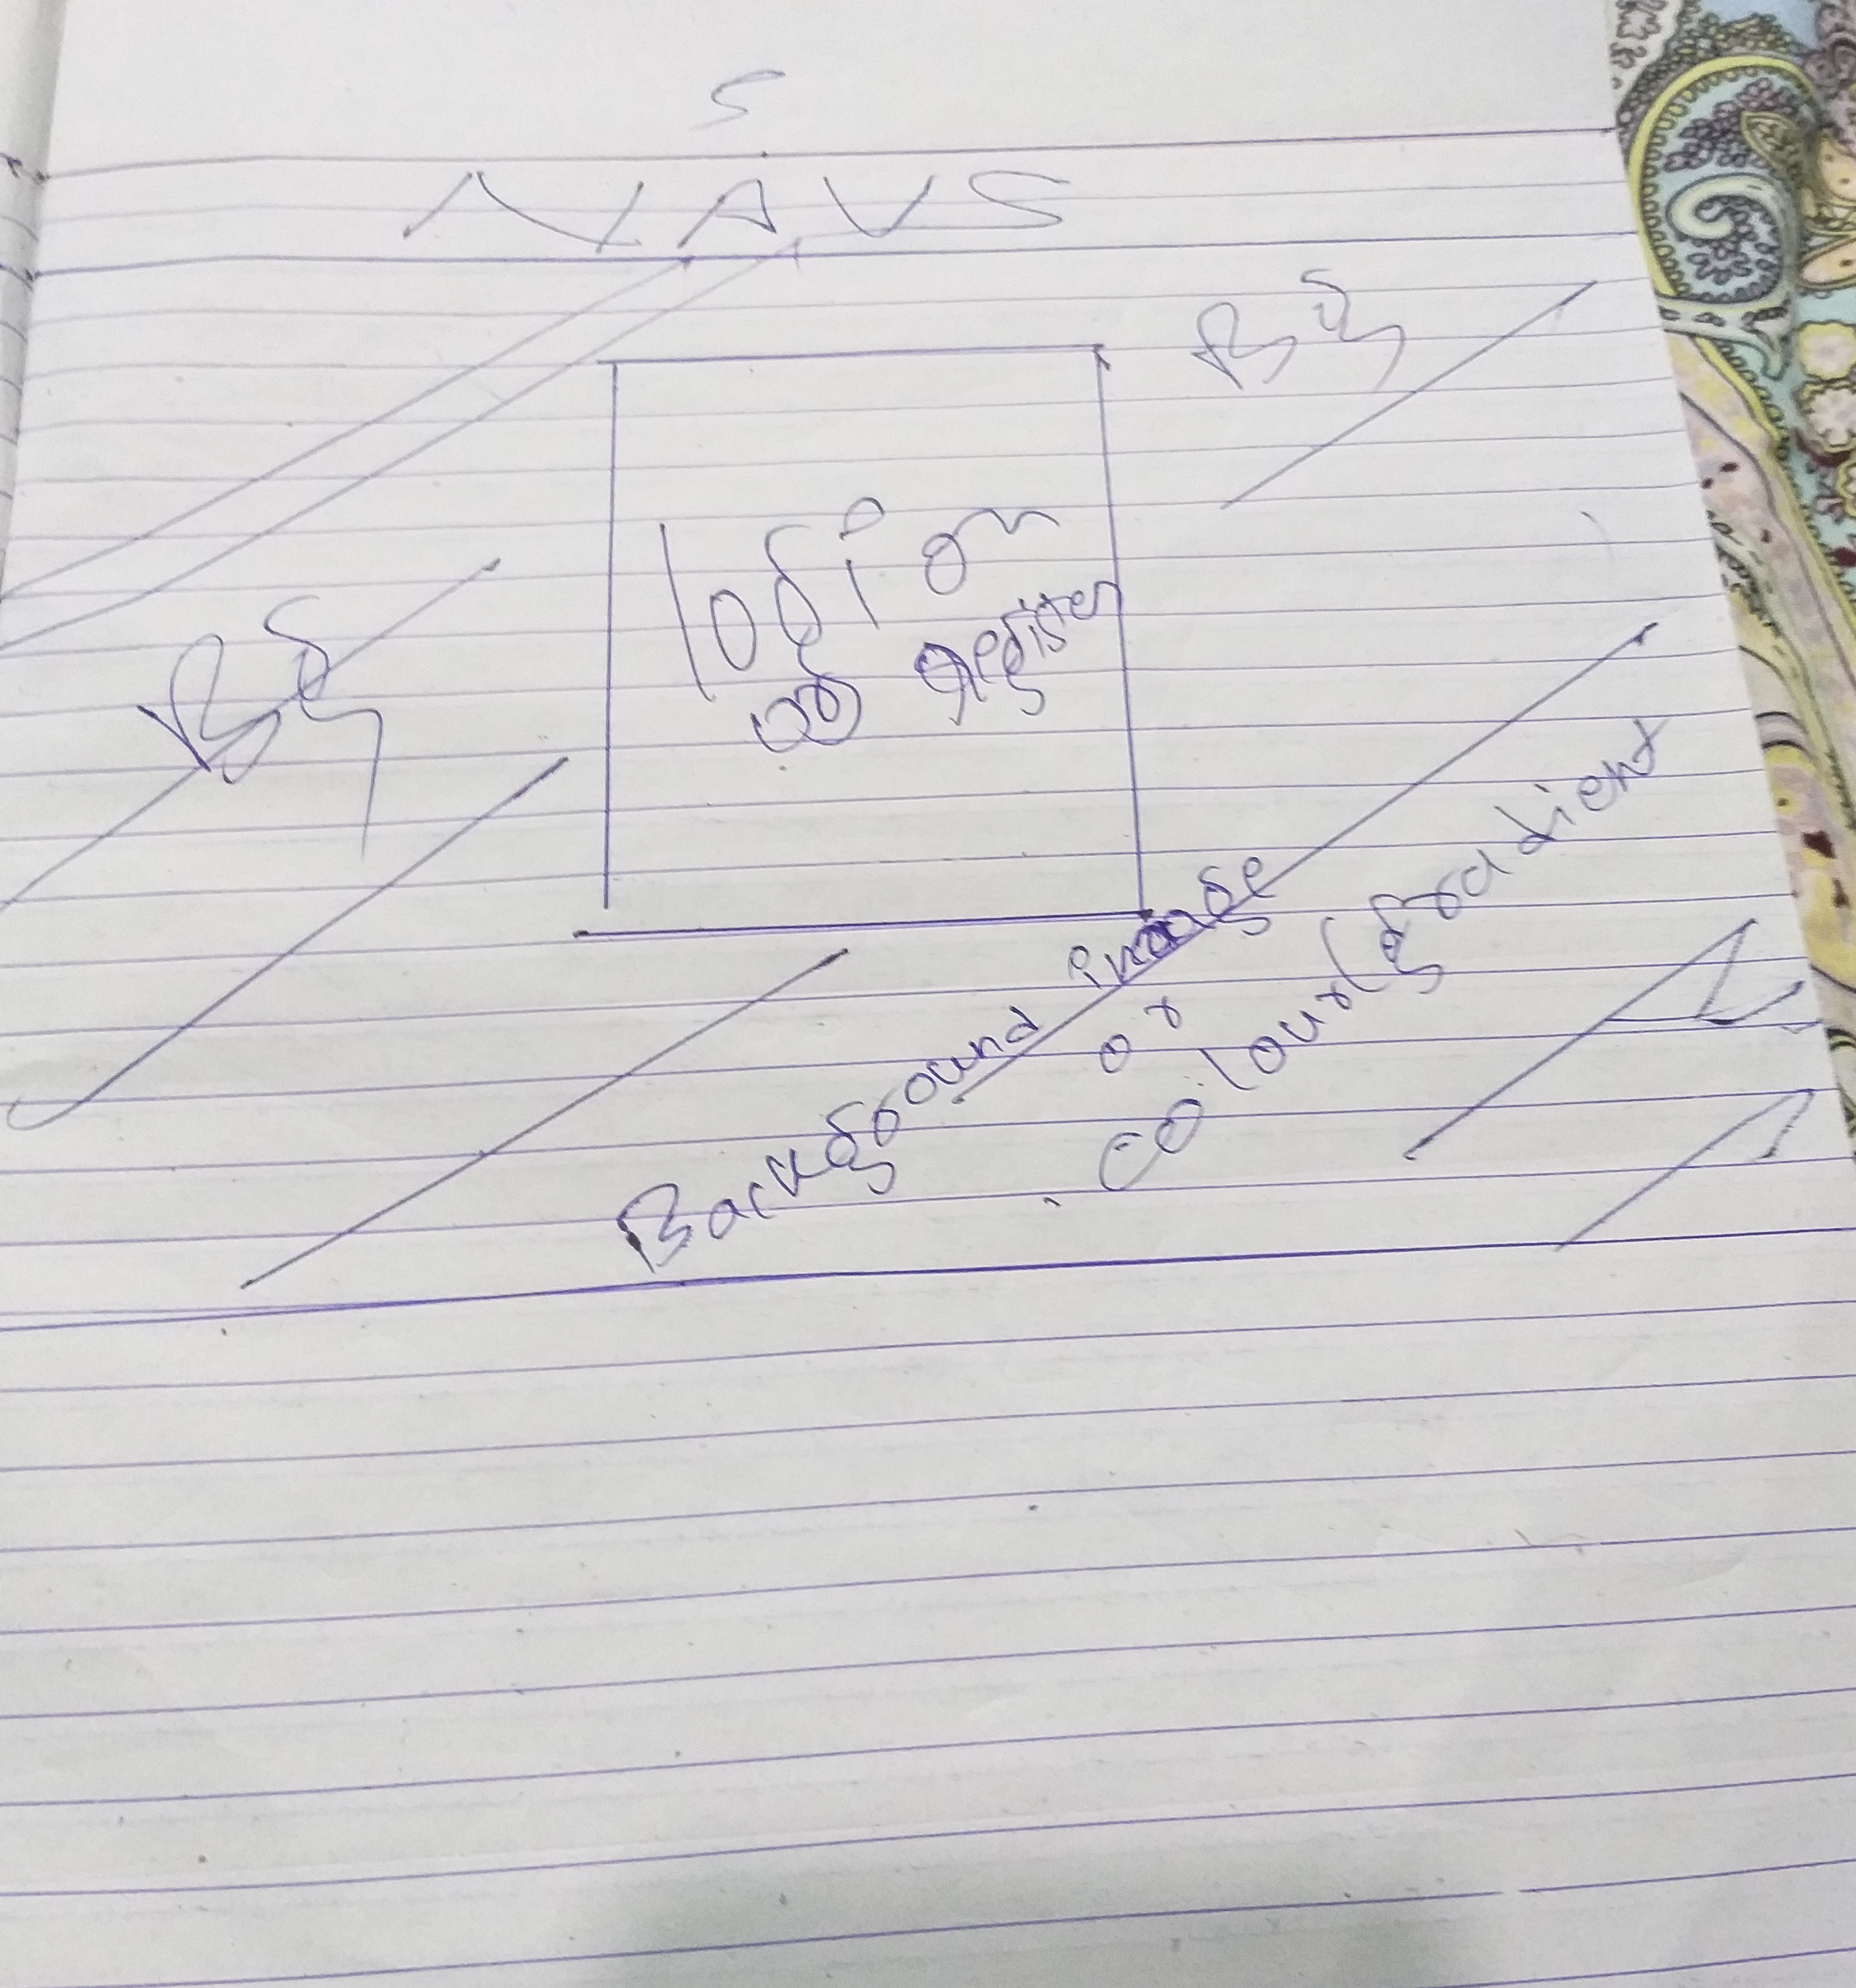 S
NAVS
Bg
login
or register
Bg
Background image
or
colour/gradient